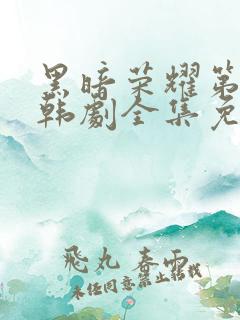 黑暗荣耀第
韩劇全集免
飛丸春雨
未经同意禁止转载